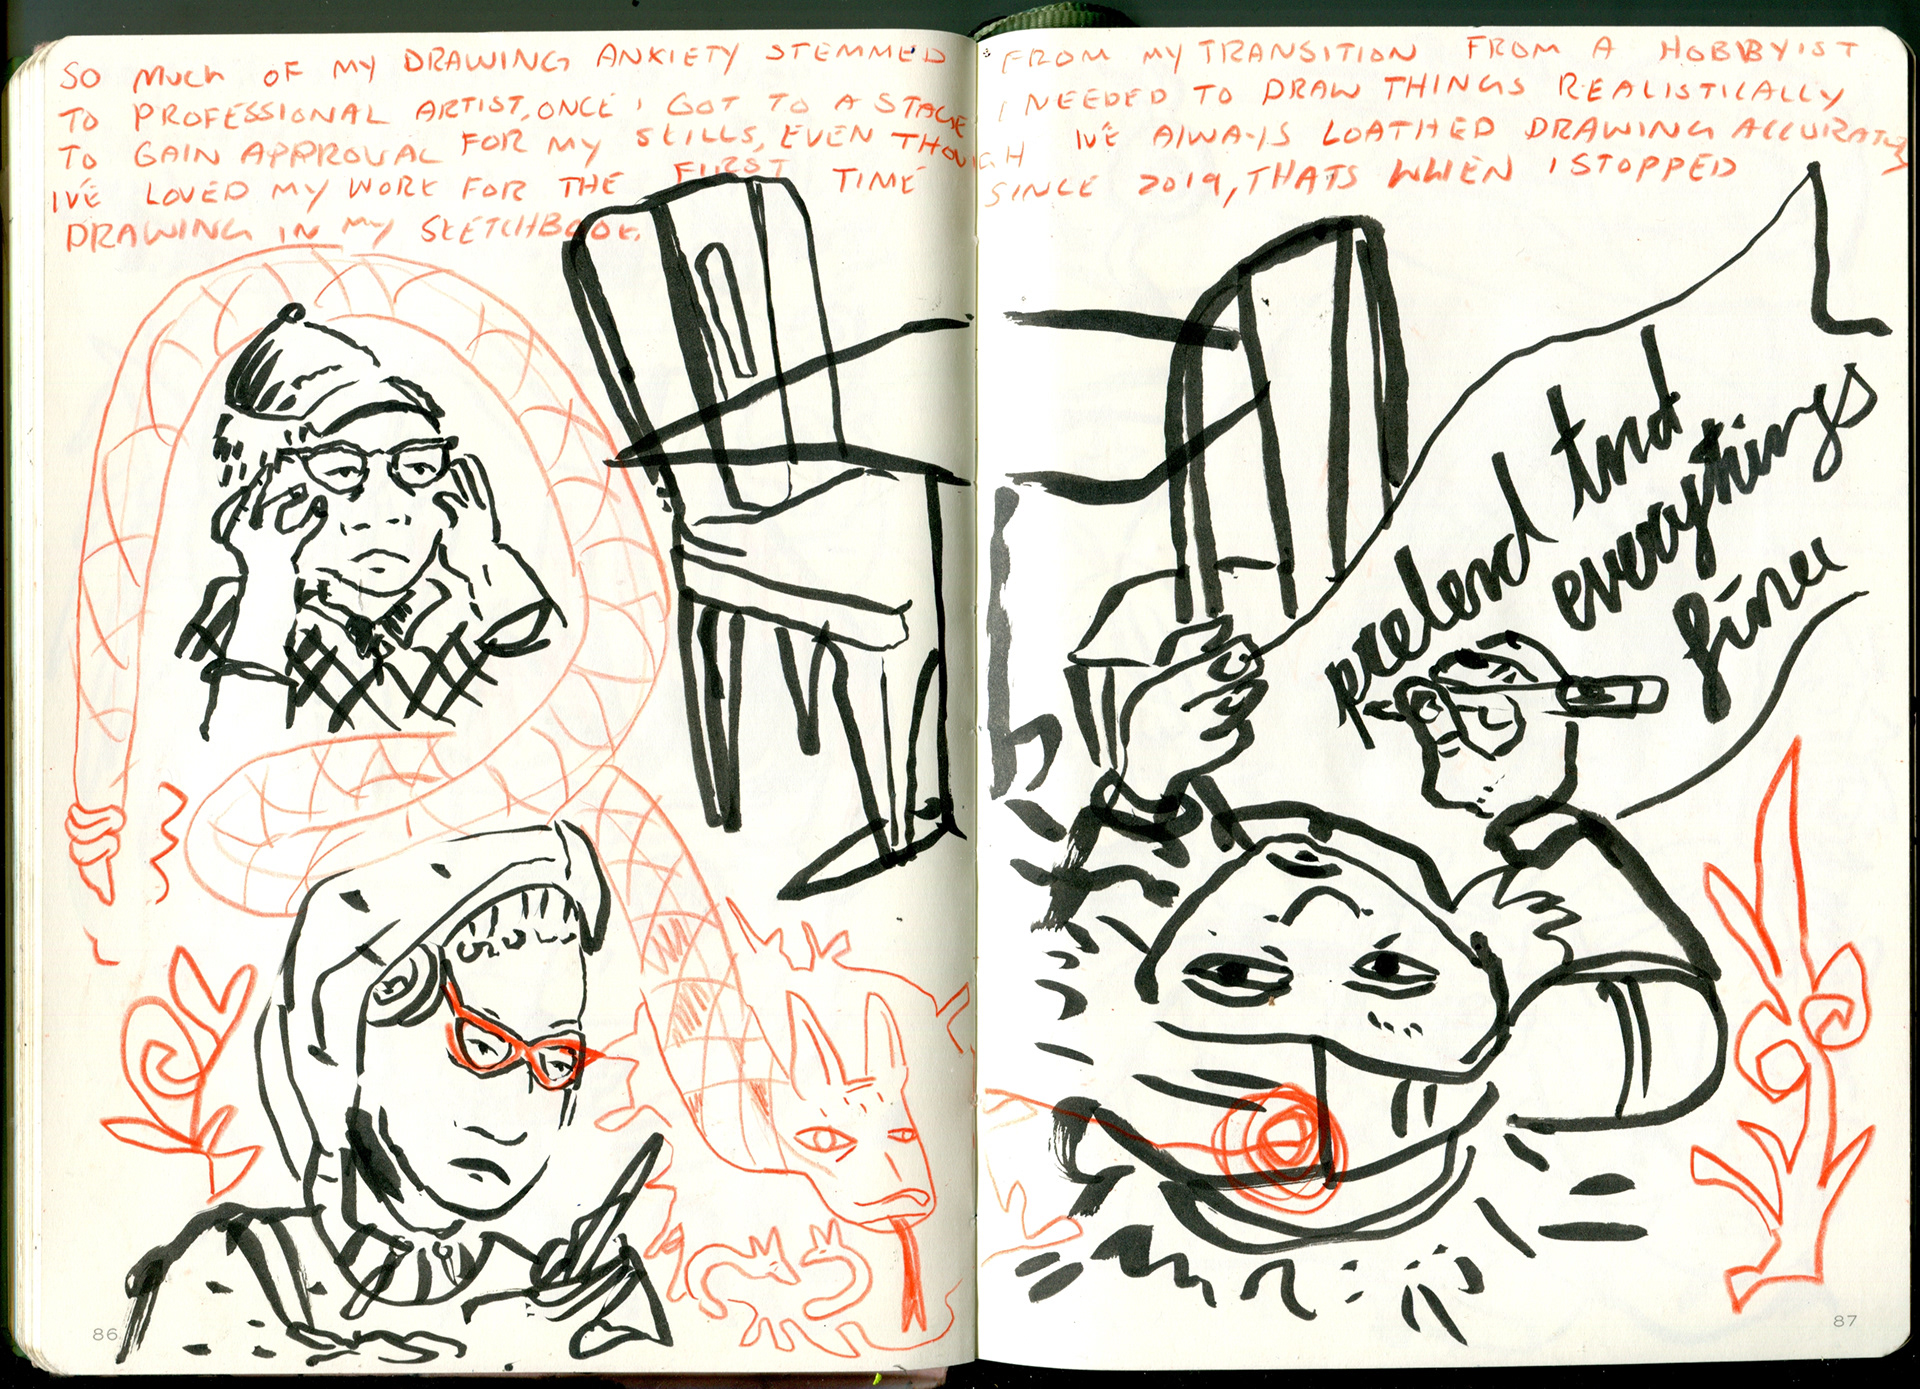 SO MUCH OF MY DRAWING ANXIETY STEMMED FROM MY TRANSITION FROM A HOBBYIST
TO PROFESSIONAL ARTIST, ONCE I GOT TO A STAGE I NEEDED TO DRAW THINGS REALISTICALLY
TO GAIN APPROVAL FOR MY SKILLS, EVEN THOUGH IVE ALWAYS LOATHED DRAWING ACCURATELY
IVE LOVED MY WORK FOR THE FIRST TIME SINCE 2019, THATS WHEN I STOPPED
DRAWING IN MY SKETCHBOOK.
pretend
everythings
fine
86
87